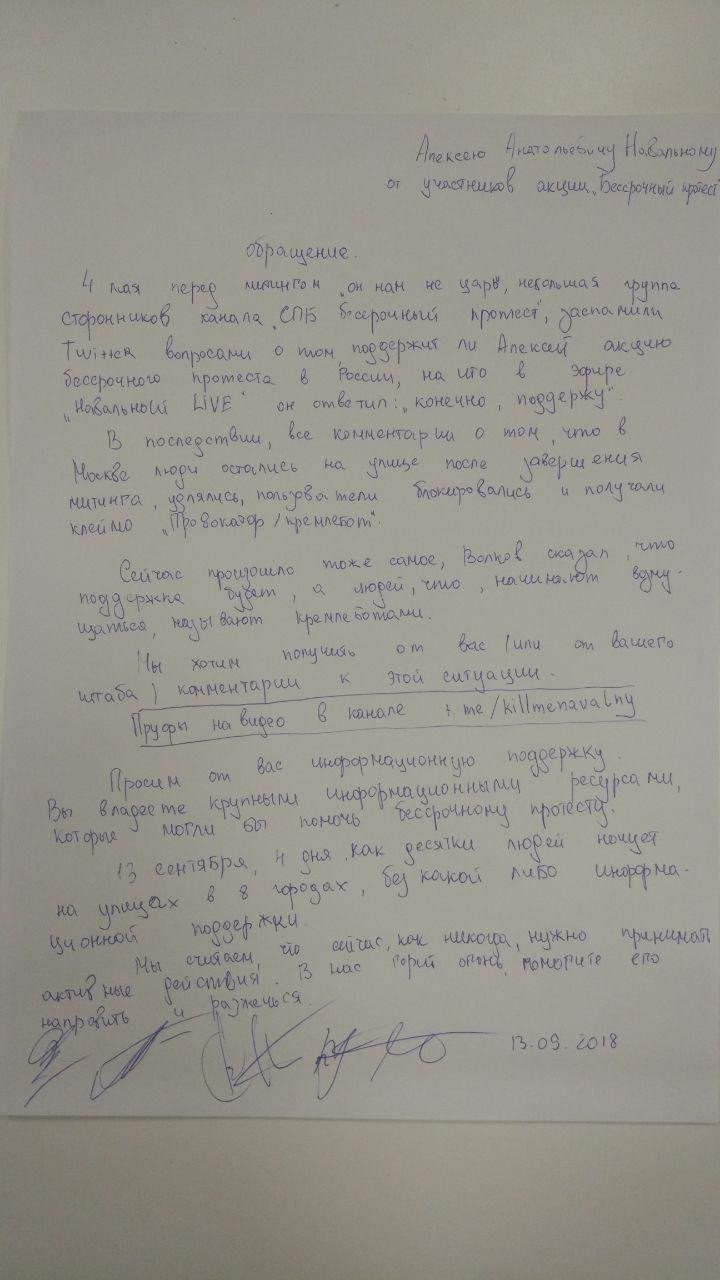 Алексею Анатольевичу Навальному
от участников акции „Бессрочный протест"
обращение.
4 мая перед митингом „он нам не царь", небольшая группа
сторонников канала „СПБ бессрочный протест", заспамили
Twitter вопросами о том, поддержит ли Алексей акцию
бессрочного протеста в России, на что в эфире
„Навальный LIVE" он ответил: „конечно, поддержу".
В последствии, все комментарии о том, что в
Москве люди остались на улице после завершения
митинга, удлялись, пользователи блокировались и получали
клеймо „Провокатор/кремлебот".
Сейчас произошло тоже самое, Волков сказал, что
поддержка будет, а людей, что, начинают возму-
щаться, называют кремлеботами.
Мы хотим получить от вас (или от вашего
штаба) комментарии к этой ситуации.
Пруфы на видео в канале t.me/killmenavalny
Просим от вас информационную поддержку.
Вы владеете крупными информационными ресурсами,
которые могли бы помочь бессрочному протесту.
13 сентября, 4 дня, как десятки людей ночует
на улицах в 8 городах, без какой либо информа-
ционной поддержки.
Мы считаем, что сейчас, как никогда, нужно принимать
активные действия. В нас горит огонь, помогите его
направить и разжечься.
13.09.2018